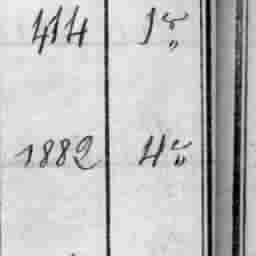 414 1
1882 4